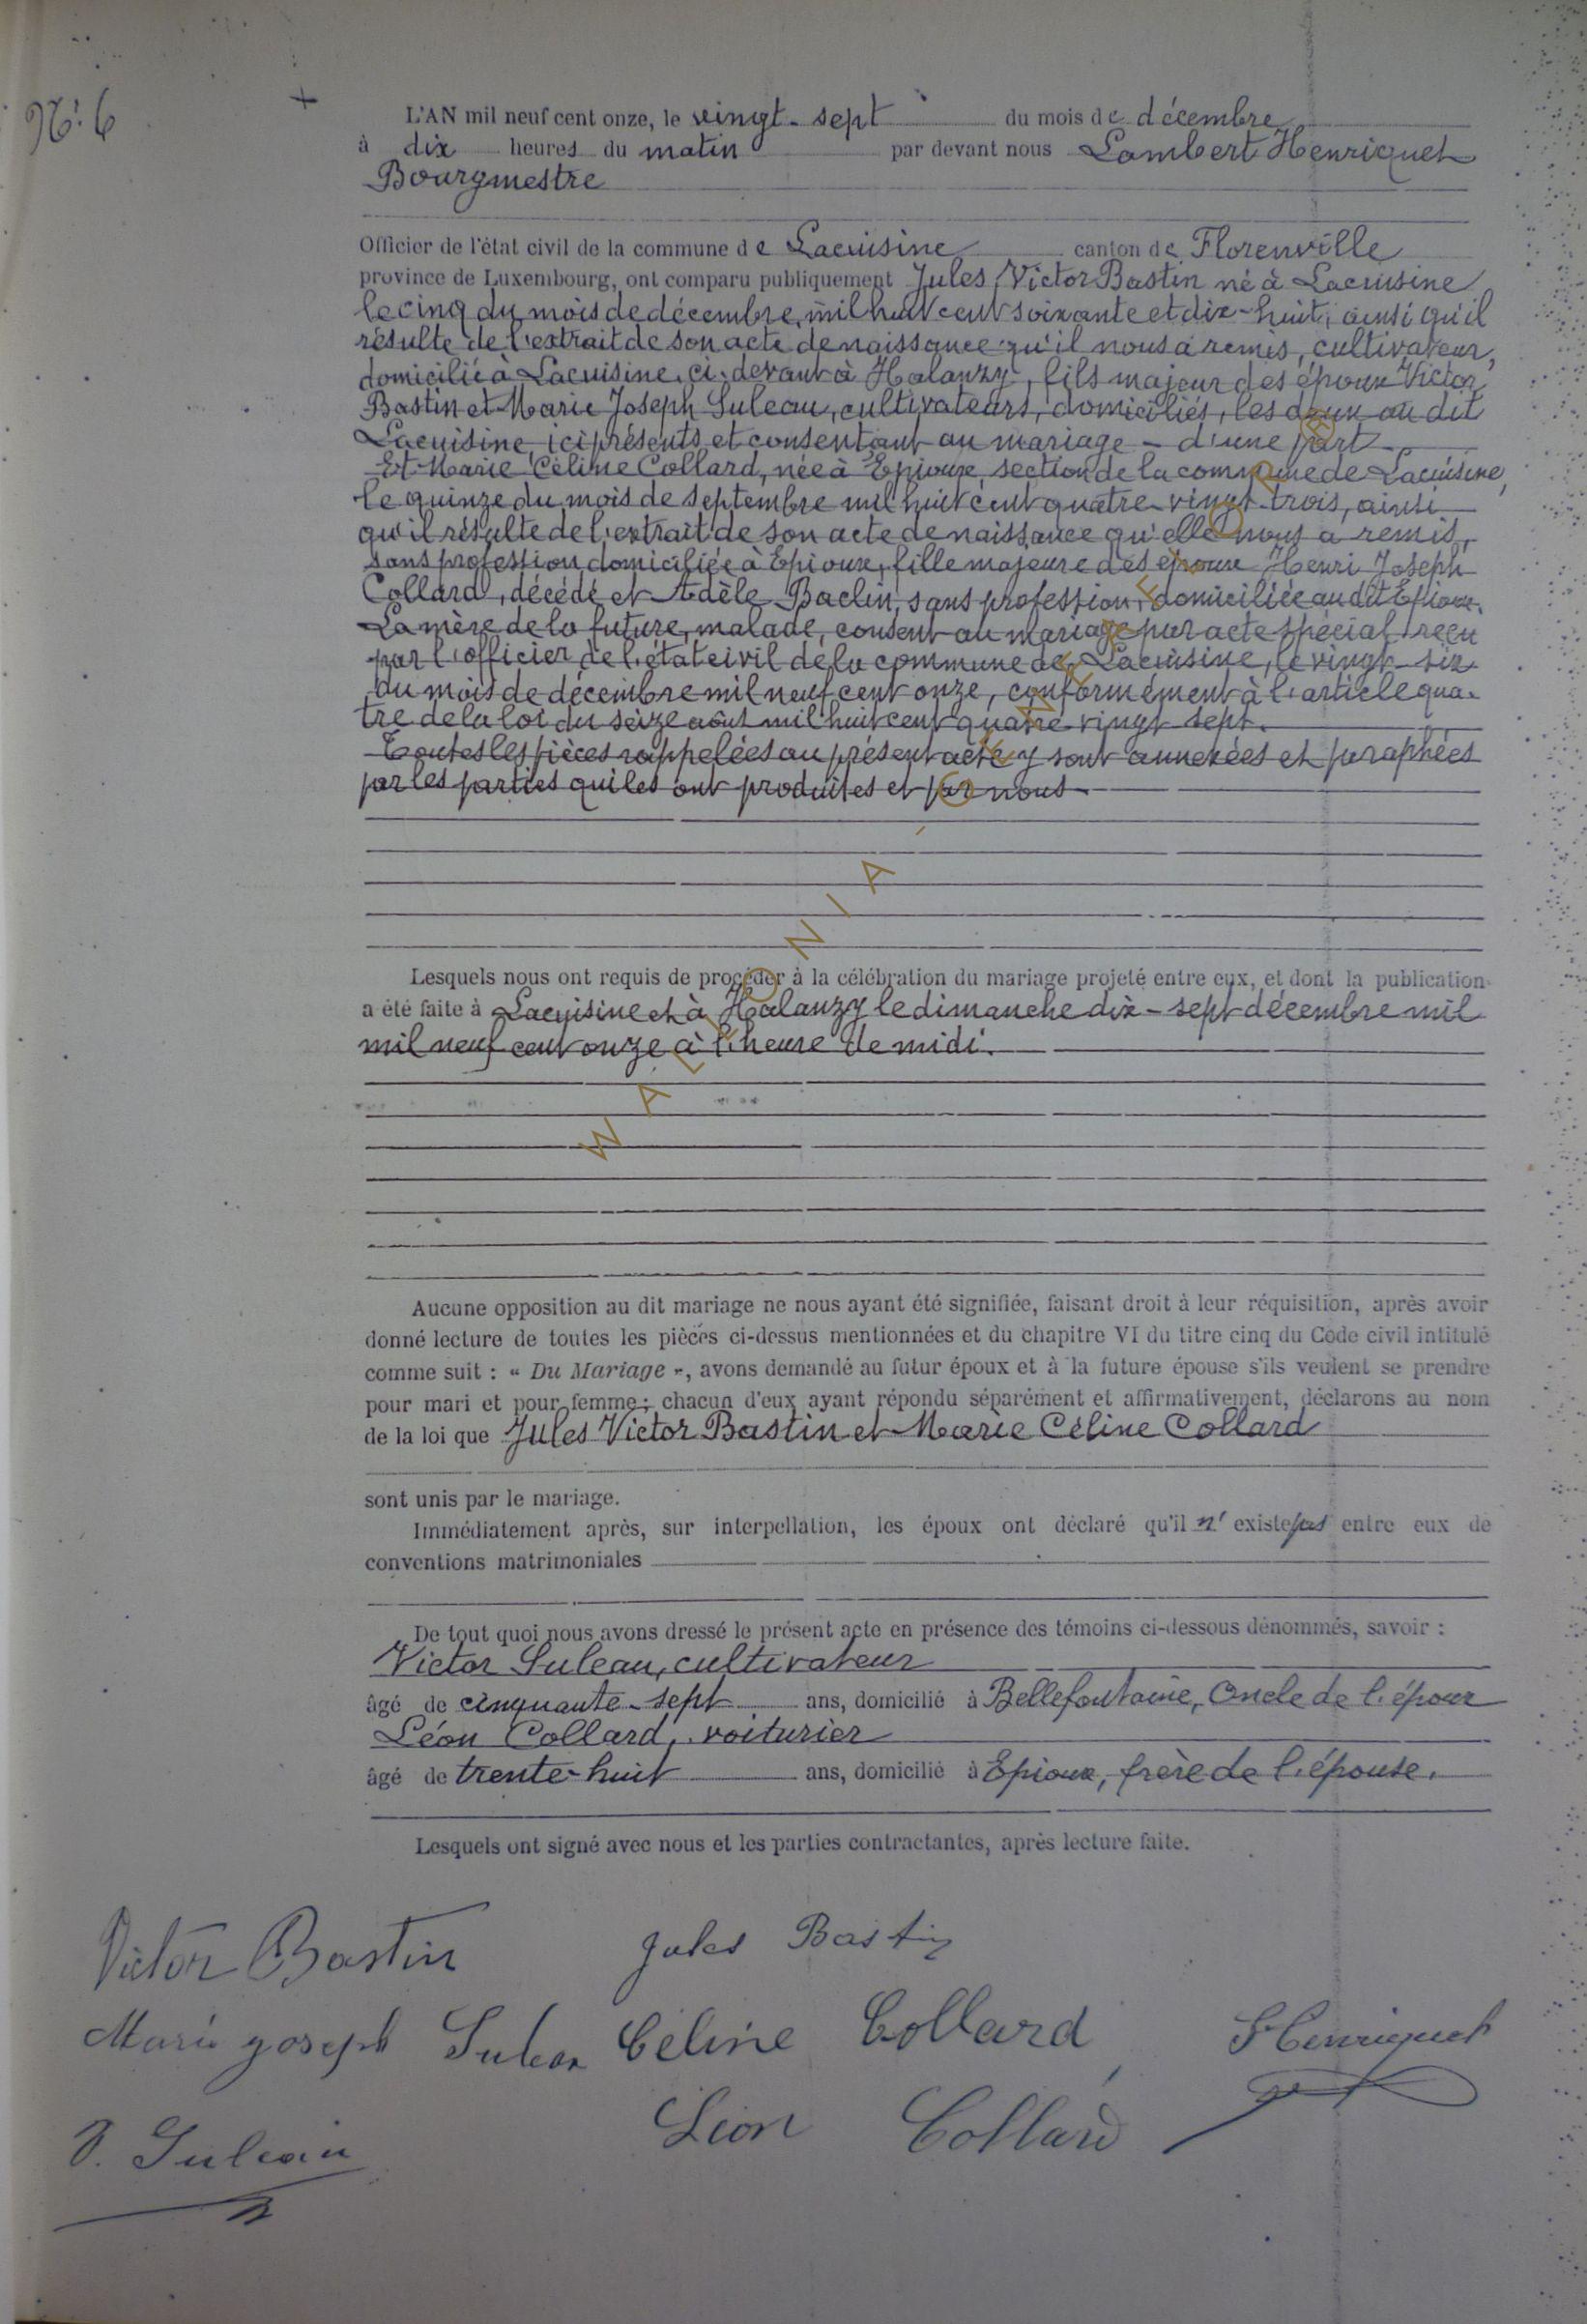 N° 6
L'AN mil neuf cent onze, le vingt-sept du mois de décembre
à dix heures du matin par devant nous Lambert Henriquet
Bourgmestre
Officier de l'état civil de la commune de Lacuisine canton de Florenville
province de Luxembourg, ont comparu publiquement Jules Victor Bastin né à Lacuisine
le cinq du mois de décembre, mil huit cent soixante et dix-huit, ainsi qu'il
résulte de l'extrait de son acte de naissance qu'il nous a remis, cultivateur,
domicilié à Lacuisine, ci-devant à Halanzy, fils majeur des époux Victor
Bastin et Marie Joseph Suleau, cultivateurs, domiciliés, les deux au dit
Lacuisine, ici présents et consentant au mariage - d'une part
Et Marie Céline Collard, née à Epioux, section de la commune de Lacuisine,
le quinze du mois de septembre mil huit cent quatre-vingt-trois, ainsi
qu'il résulte de l'extrait de son acte de naissance qu'elle nous a remis,
sans profession, domiciliée à Epioux, fille majeure des époux Henri Joseph
Collard, décédé et Adèle Baclin, sans profession, domiciliée au dit Epioux.
La mère de la future, malade, consent au mariage par acte spécial reçu
par l'officier de l'état civil de la commune de Lacuisine, le vingt-six
du mois de décembre mil neuf cent onze, conformément à l'article qua-
tre de la loi du seize août mil huit cent quatre-vingt-sept.
Toutes les pièces rappelées au présent acte y sont annexées et paraphées
par les parties qui les ont produites et par nous-
Lesquels nous ont requis de procéder à la célébration du mariage projeté entre eux, et dont la publication
a été faite à Lacuisine et à Halanzy le dimanche dix-sept décembre mil
mil neuf cent onze à l'heure de midi.
Aucune opposition au dit mariage ne nous ayant été signifiée, faisant droit à leur réquisition, après avoir
donné lecture de toutes les pièces ci-dessus mentionnées et du chapitre VI du titre cinq du Code civil intitulé
comme suit : « Du Mariage », avons demandé au futur époux et à la future épouse s'ils veulent se prendre
pour mari et pour femme ; chacun d'eux ayant répondu séparément et affirmativement, déclarons au nom
de la loi que Jules Victor Bastin et Marie Céline Collard
sont unis par le mariage.
Immédiatement après, sur interpellation, les époux ont déclaré qu'il n'existe pas entre eux de
conventions matrimoniales
De tout quoi nous avons dressé le présent acte en présence des témoins ci-dessous dénommés, savoir :
Victor Suleau, cultivateur
âgé de cinquante-sept ans, domicilié à Bellefontaine, Oncle de l'époux
Léon Collard, voiturier
âgé de trente-huit ans, domicilié à Epioux, frère de l'épouse.
Lesquels ont signé avec nous et les parties contractantes, après lecture faite.
Victor Bastin Jules Bastin
Marie Joseph Suleau Céline Collard L Henriquet
V. Suleau Léon Collard